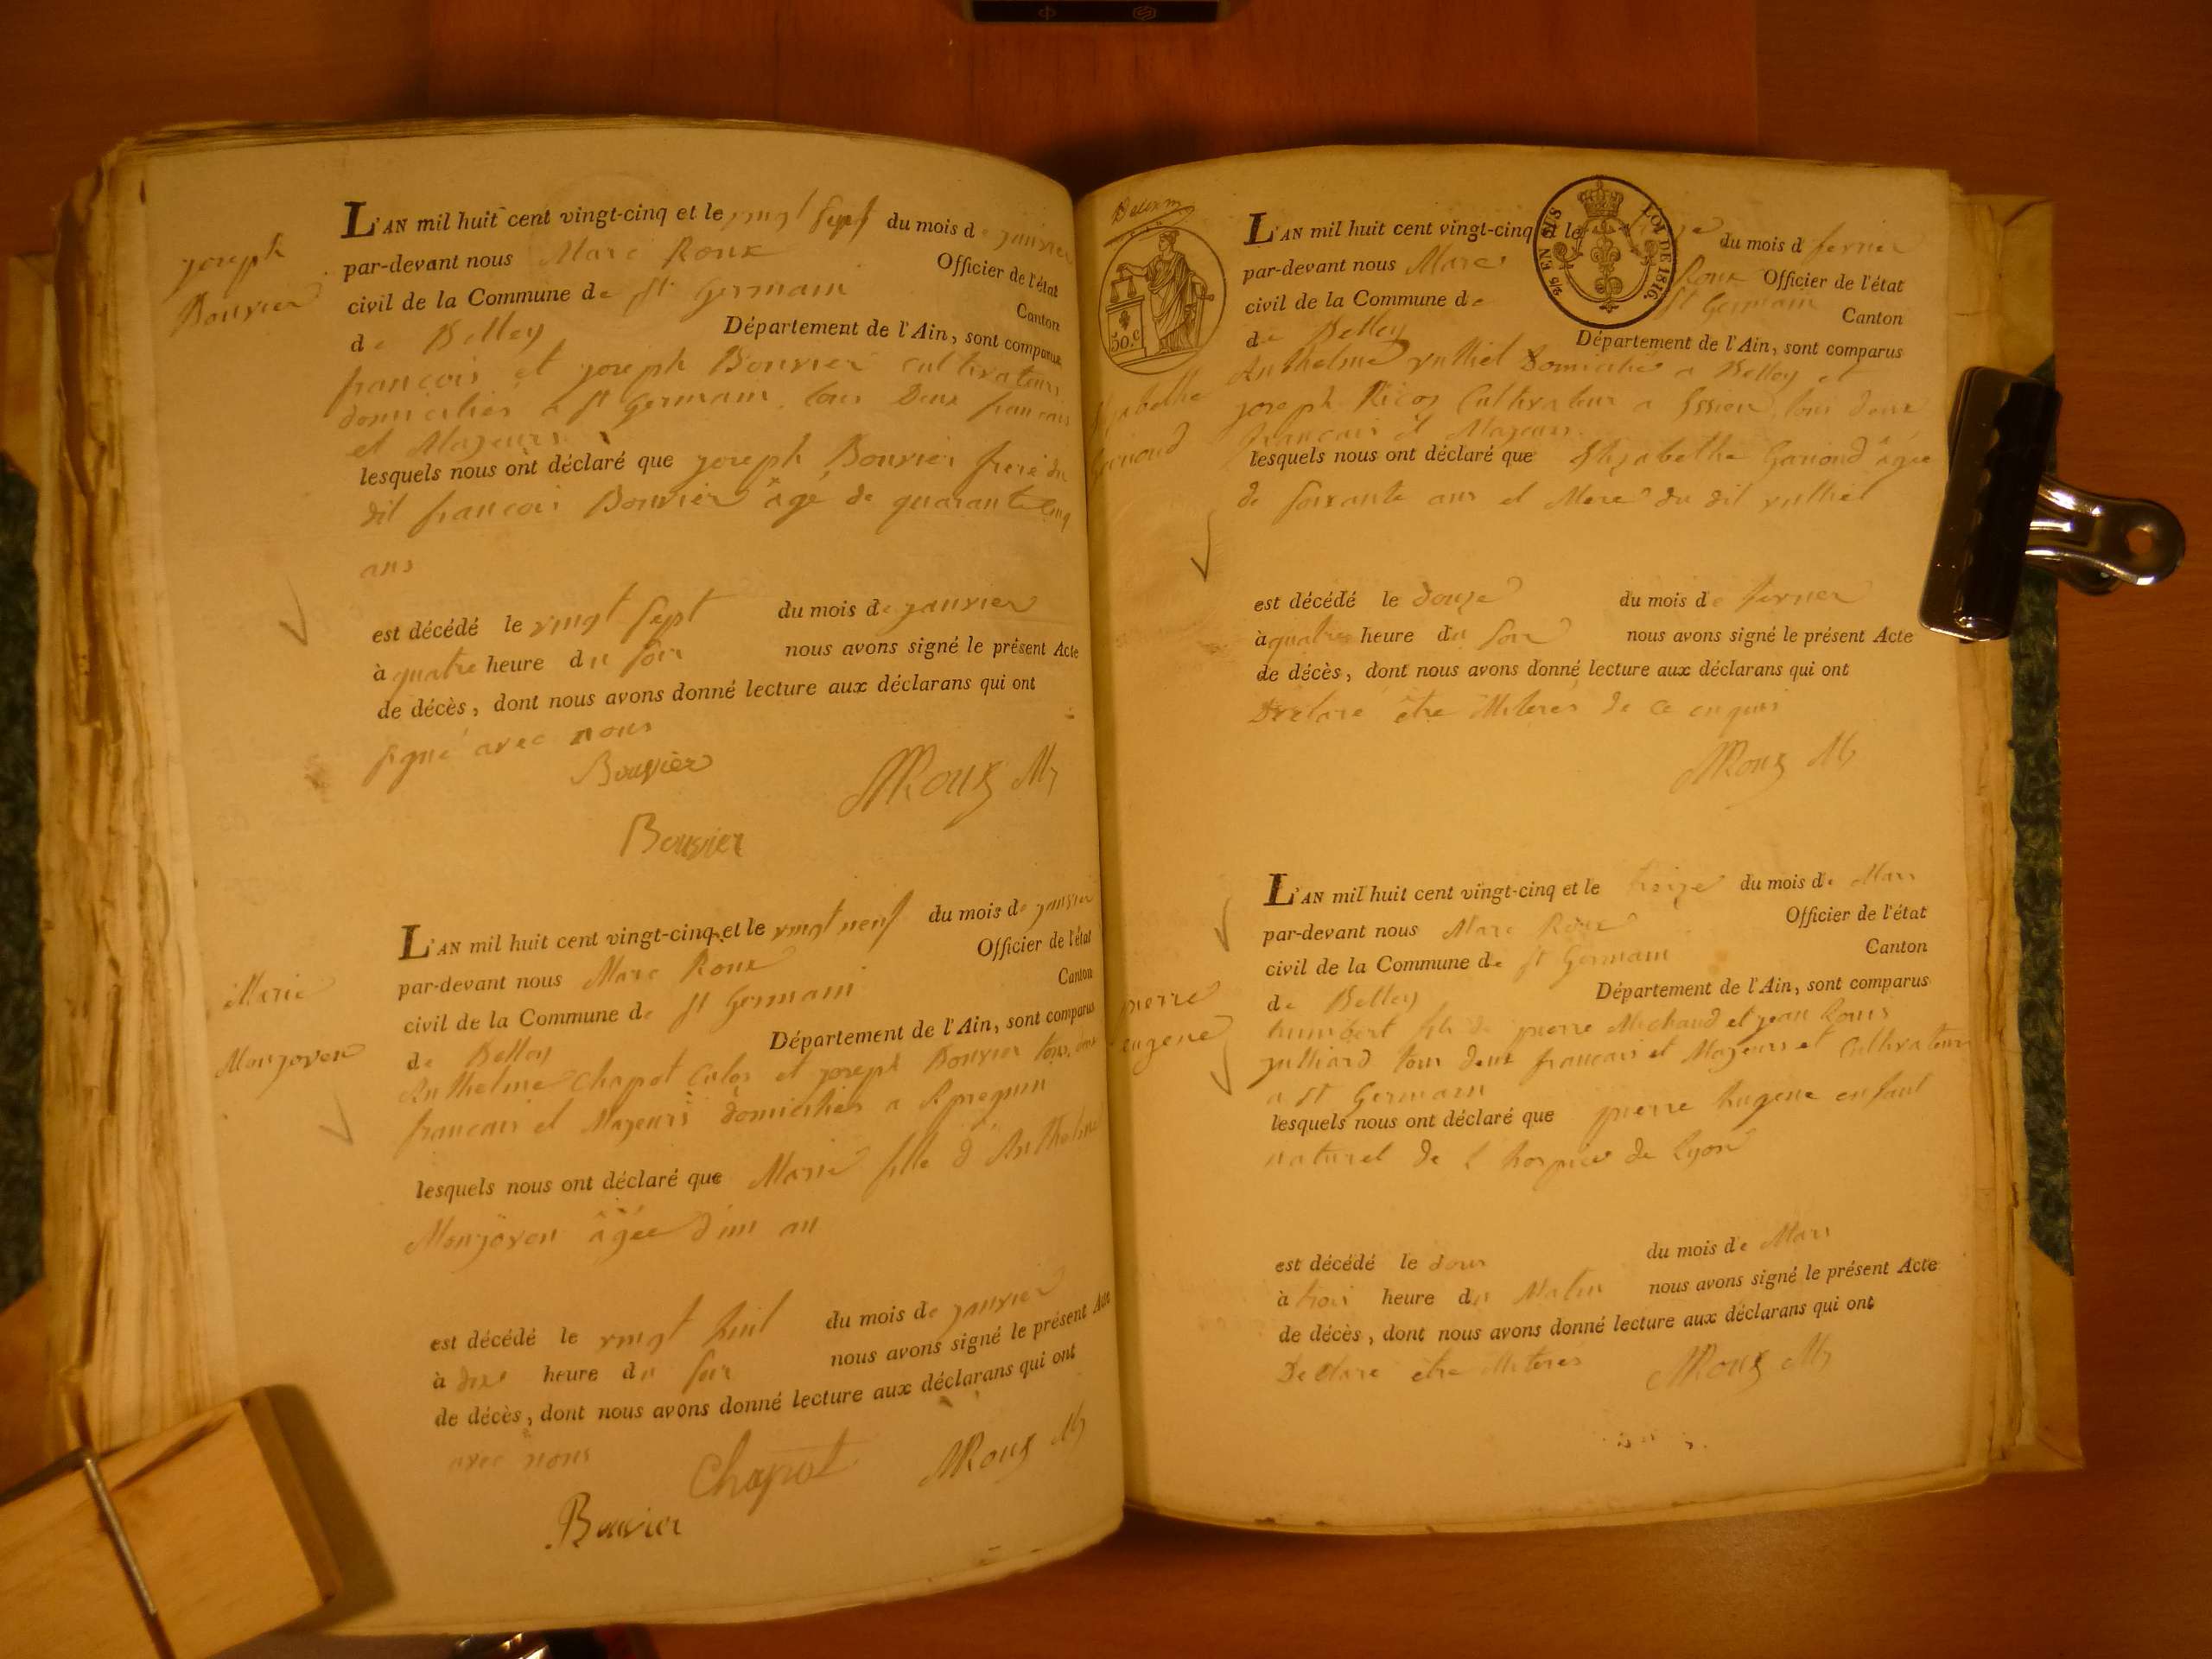 joseph
Bouvier
L'AN mil huit cent vingt-cinq et le vingt sept du mois de janvier
par-devant nous Marc Roux Officier de l'état
civil de la Commune de st Germain Canton
de Belley Département de l'Ain, sont comparus
francois et joseph Bouvier cultivateurs
domiciliés a st Germain tous Deux francais
et Majeurs
lesquels nous ont déclaré que joseph Bouvier frere du
dit francois Bouvier âgé de quarante cinq
ans
est décédé le vingt sept du mois de janvier
à quatre heure du soir nous avons signé le présent Acte
de décès, dont nous avons donné lecture aux déclarans qui ont
signé avec nous
Bouvier
MRoux
Bouvier
Marie
Monjoven
L'AN mil huit cent vingt-cinq et le vingt neuf du mois de janvier
par-devant nous Marc Roux Officier de l'état
civil de la Commune de st Germain Canton
de Belley Département de l'Ain, sont comparus
Anthelme Chapot et joseph Bouvier tous
francais et Majeurs domiciliés a
lesquels nous ont déclaré que Marie fille d'Anthelme
Monjoven âgée d'un an
est décédé le vingt huit du mois de janvier
à dix heure du soir nous avons signé le présent Acte
de décès, dont nous avons donné lecture aux déclarans qui ont
avec nous
Chapot
MRoux
Bouvier
50.c
EN SUS
LOI DE 1816.
L'AN mil huit cent vingt-cinq et le du mois de fevrier
par-devant nous Marc Roux Officier de l'état
civil de la Commune de St Germain Canton
de Belley Département de l'Ain, sont comparus
Anthelme Domicilié a Belley et
joseph Cultivateur a tous deux
francais et Majeurs
lesquels nous ont déclaré que âgée
de soixante ans et Mere du dit
est décédé le douze du mois de fevrier
à quatre heure du soir nous avons signé le présent Acte
de décès, dont nous avons donné lecture aux déclarans qui ont
Declaré être de ce enquis
MRoux
pierre
eugene
L'AN mil huit cent vingt-cinq et le treize du mois de Mars
par-devant nous Marc Roux Officier de l'état
civil de la Commune de st Germain Canton
de Belley Département de l'Ain, sont comparus
humbert fils de pierre Michaud et jean Louis
julliard tous deux francais et Majeurs et Cultivateurs
a st Germain
lesquels nous ont déclaré que pierre Eugene enfant
naturel de l hospice de Lyon
est décédé le du mois de Mars
à trois heure du Matin nous avons signé le présent Acte
de décès, dont nous avons donné lecture aux déclarans qui ont
Declaré être
MRoux